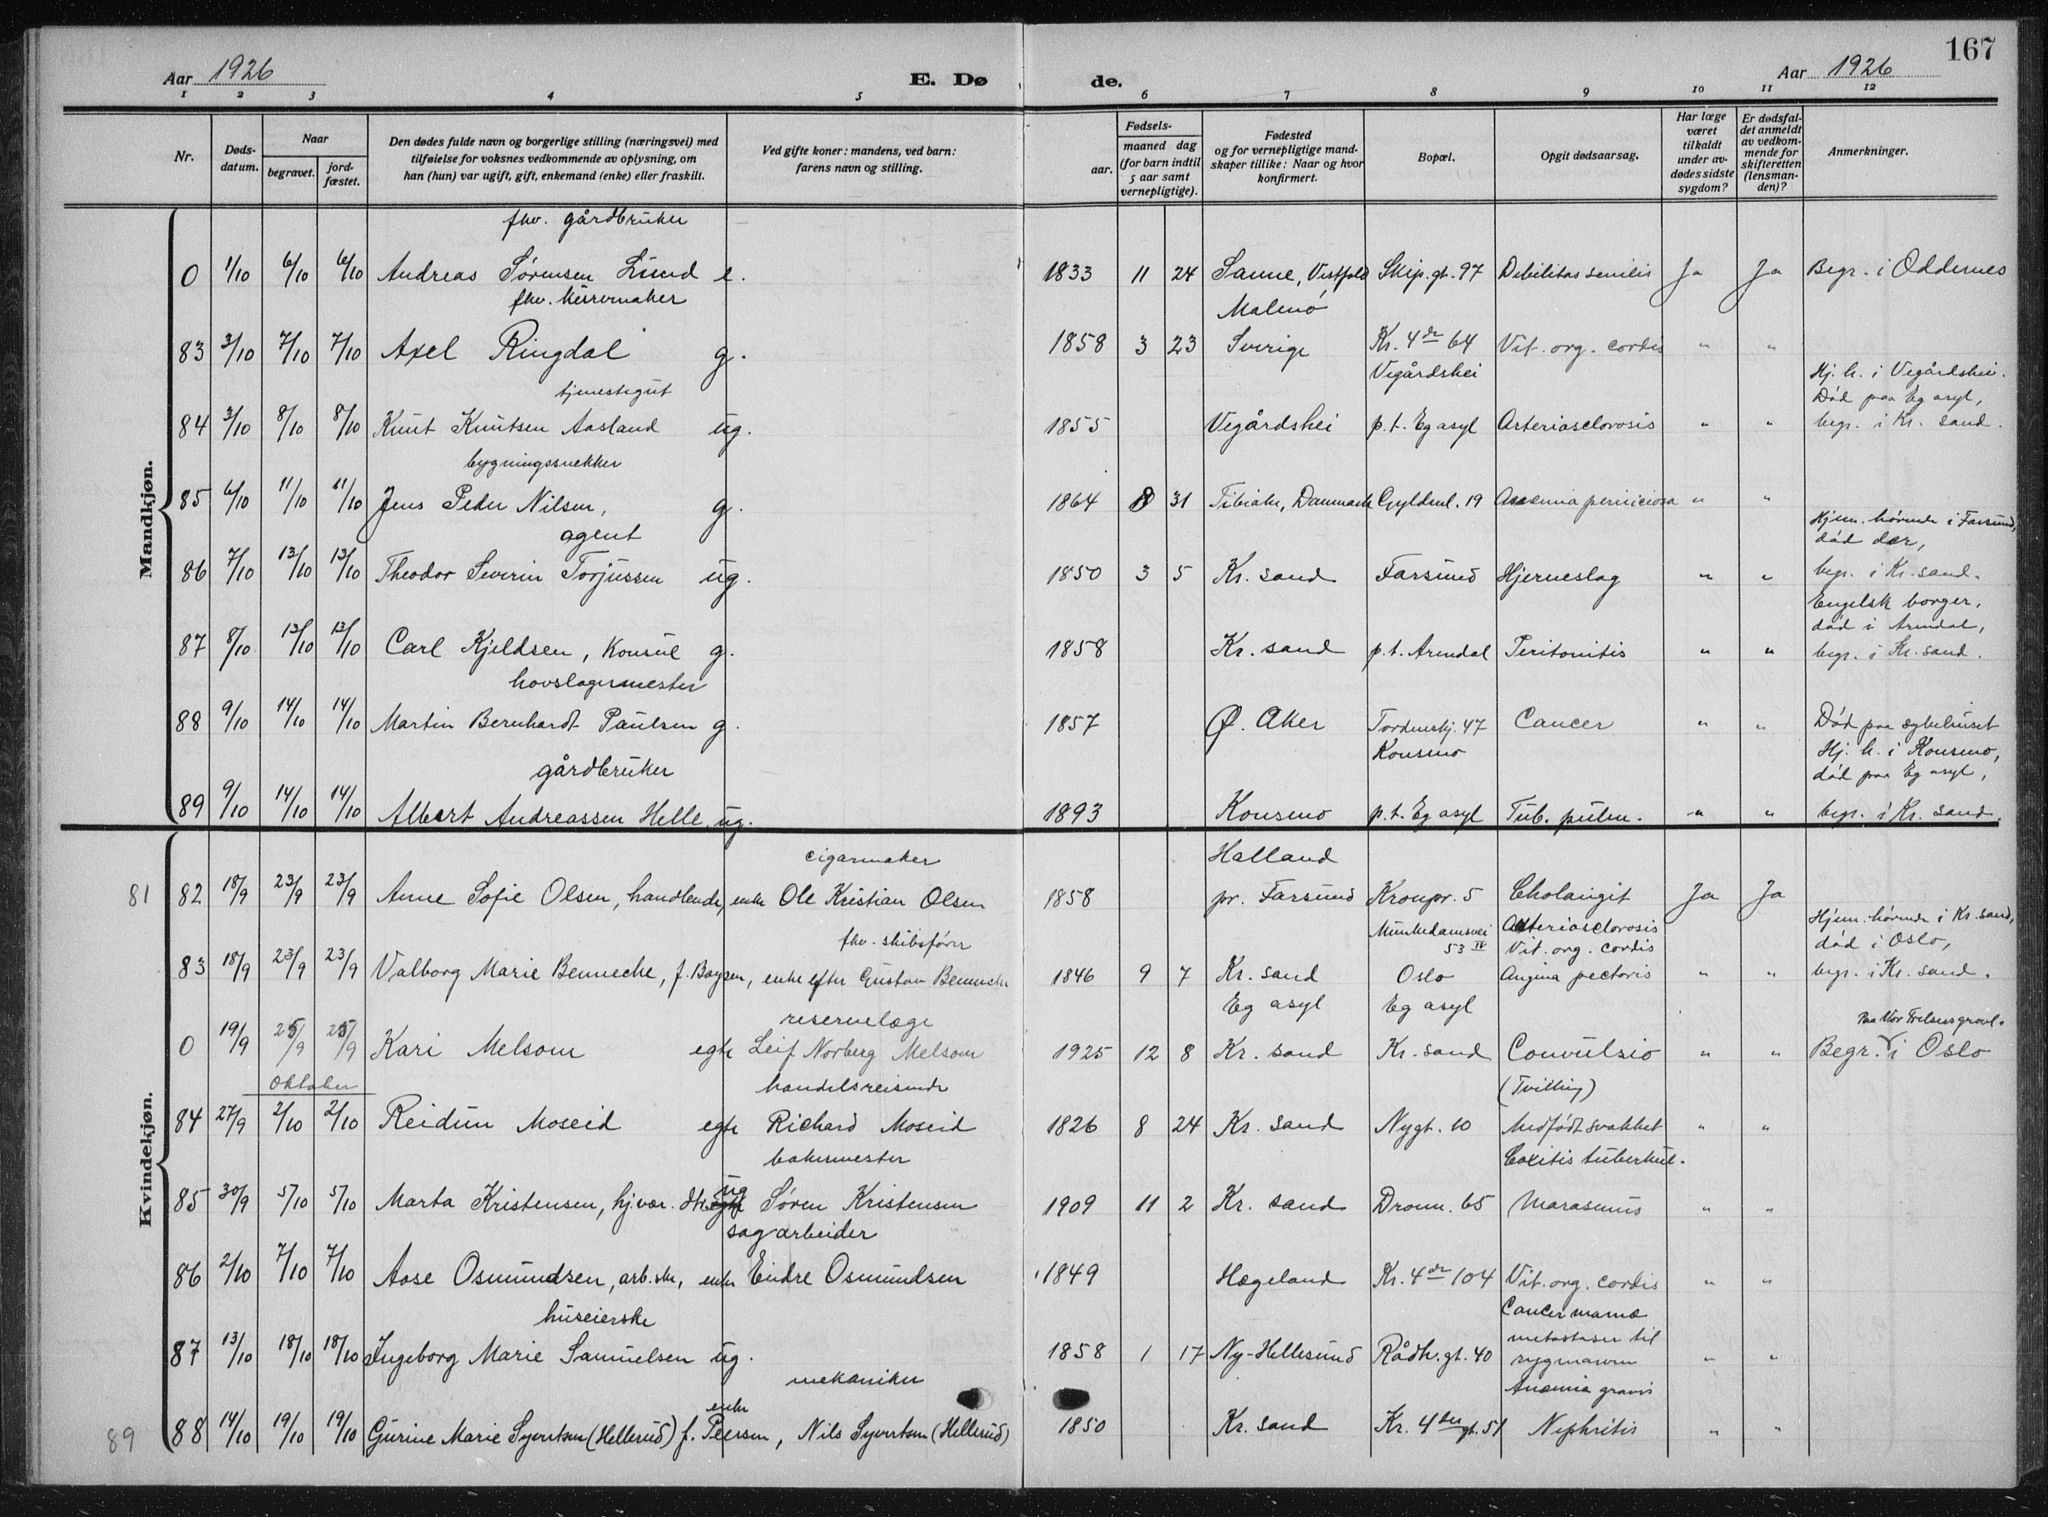 167
Aar 1926
E. Døde.
Aar 1926
1 2 3 4 5 6 7 8 9 10 11 12
Nr.
Døds-datum.
Naar
begravet.
jord-fæstet.
Den dødes fulde navn og borgerlige stilling (næringsvei) med
tilføielse for voksnes vedkommende av oplysning, om
han (hun) var ugift, gift, enkemand (enke) eller fraskilt.
Ved gifte koner: mandens, ved barn:
farens navn og stilling.
Fødsels-
aar.
maaned dag
(for barn indtil
5 aar samt
vernepligtige).
Fødested
og for vernepligtige mand-
skaper tillike: Naar og hvor
konfirmert.
Bopæl.
Opgit dødsaarsag.
Har læge
været
tilkaldt
under av-
dødes sidste
sygdom?
Er dødsfal-
det anmeldt
av vedkom-
mende for
skifteretten
(lensman-
den)?
Anmerkninger.
Mandkjøn.
fhv. gårdbruker
0 1/10 6/10 6/10 Andreas Sørensen Lund e. 1833 11 24 Sanne, Vestfold Skip.gt. 97 Debilitas senilis Ja Ja Begr. i Oddernes
fhv. Malmø
83 3/10 7/10 7/10 Axel Ringdal g. 1858 3 23 Sverige Kr. 4de 64 Vit. org. cordis " "
tjenestegut Vegårdshei Hj. h. i Vegårdshei.
Død paa Eg asyl,
84 3/10 8/10 8/10 Knut Knutsen Aasland ug. 1855 Vegårdshei p.t. Eg asyl Arteriasclorosis " " begr. i Kr. sand.
bygningssnekker
85 6/10 11/10 11/10 Jens Peder Nilsen, g. 1864 8 31 Tibirke, Danmark Gyldenl. 19 Anæmia perniciosa " "
agent Hjem.hørende i Farsund,
død der,
86 7/10 13/10 13/10 Theodor Severin Torjussen ug. 1850 3 5 Kr. sand Farsund Hjerneslag " " begr. i Kr. sand.
Engelsk borger,
død i Arendal,
87 8/10 13/10 13/10 Carl Kjeldsen, Konsul g. 1858 Kr. sand p.t. Arendal Peritonitis " " begr. i Kr. sand.
hovslagermester
88 9/10 14/10 14/10 Martin Bernhardt Paulsen g. 1857 Ø. Aker Tordenskj. 47 Cancer " " Død paa sykehuset
gårdbruker Konsmo Hj. h. i Konsmo,
død paa Eg asyl,
89 9/10 14/10 14/10 Albert Andreassen Helle ug. 1893 Konsmo p.t. Eg asyl Tub. pulm. " " begr. i Kr. sand.
Kvindekjøn.
cigarmaker Halland
81 82 18/9 23/9 23/9 Anne Sofie Olsen, handlende, enke Ole Kristian Olsen 1858 pr. Farsund Kronpr. 5 Cholangit Ja Ja
fhv. skibsfører Munkedamsvei 53 IV Arteriasclorosis Vit. org. cordis Hjem.hørende i Kr. sand,
død i Oslo,
83 18/9 23/9 23/9 Valborg Marie Benneche, f. Boysen, enke efter Gustav Benneche 1846 9 7 Kr. sand Oslo Angina pectoris " " begr. i Kr. sand.
reservelæge Eg asyl Eg asyl Paa Vor Frelsers gravl.
0 19/9 25/9 25/9 Kari Melsom egte Leif Norberg Melsom 1925 12 8 Kr. sand Kr. sand Convulsio " " Begr. i Oslo
oktober handelsreisende (Tvilling)
84 27/9 2/10 2/10 Reidun Moseid egte Richard Moseid 1826 8 24 Kr. sand Nygt. 10 Medfødt svakhet " "
bakermester Coxitis tuberkul.
85 30/9 5/10 5/10 Marta Kristensen, hj.vær. dtr. ug Søren Kristensen 1909 11 2 Kr. sand Dronn. 65 Marasmus " "
sagarbeider
86 2/10 7/10 7/10 Aase Osmundsen, arb.ske, enke Endre Osmundsen 1849 Hægeland Kr. 4de 104 Vit. org. cordis " "
huseierske Cancer mamæ
metastaser til
87 13/10 18/10 18/10 Ingeborg Marie Samuelsen ug. 1858 1 17 Ny-Hellesund Rådh.gt. 40 rygmarven " "
mekaniker Anæmia gravis
enke
89 88 14/10 19/10 19/10 Gurine Marie Syvertsen (Hellerud) f. Peersen, Nils Syvertsen (Hellerud) 1850 Kr. sand Kr. 4des gt. 51 Nephritis " "